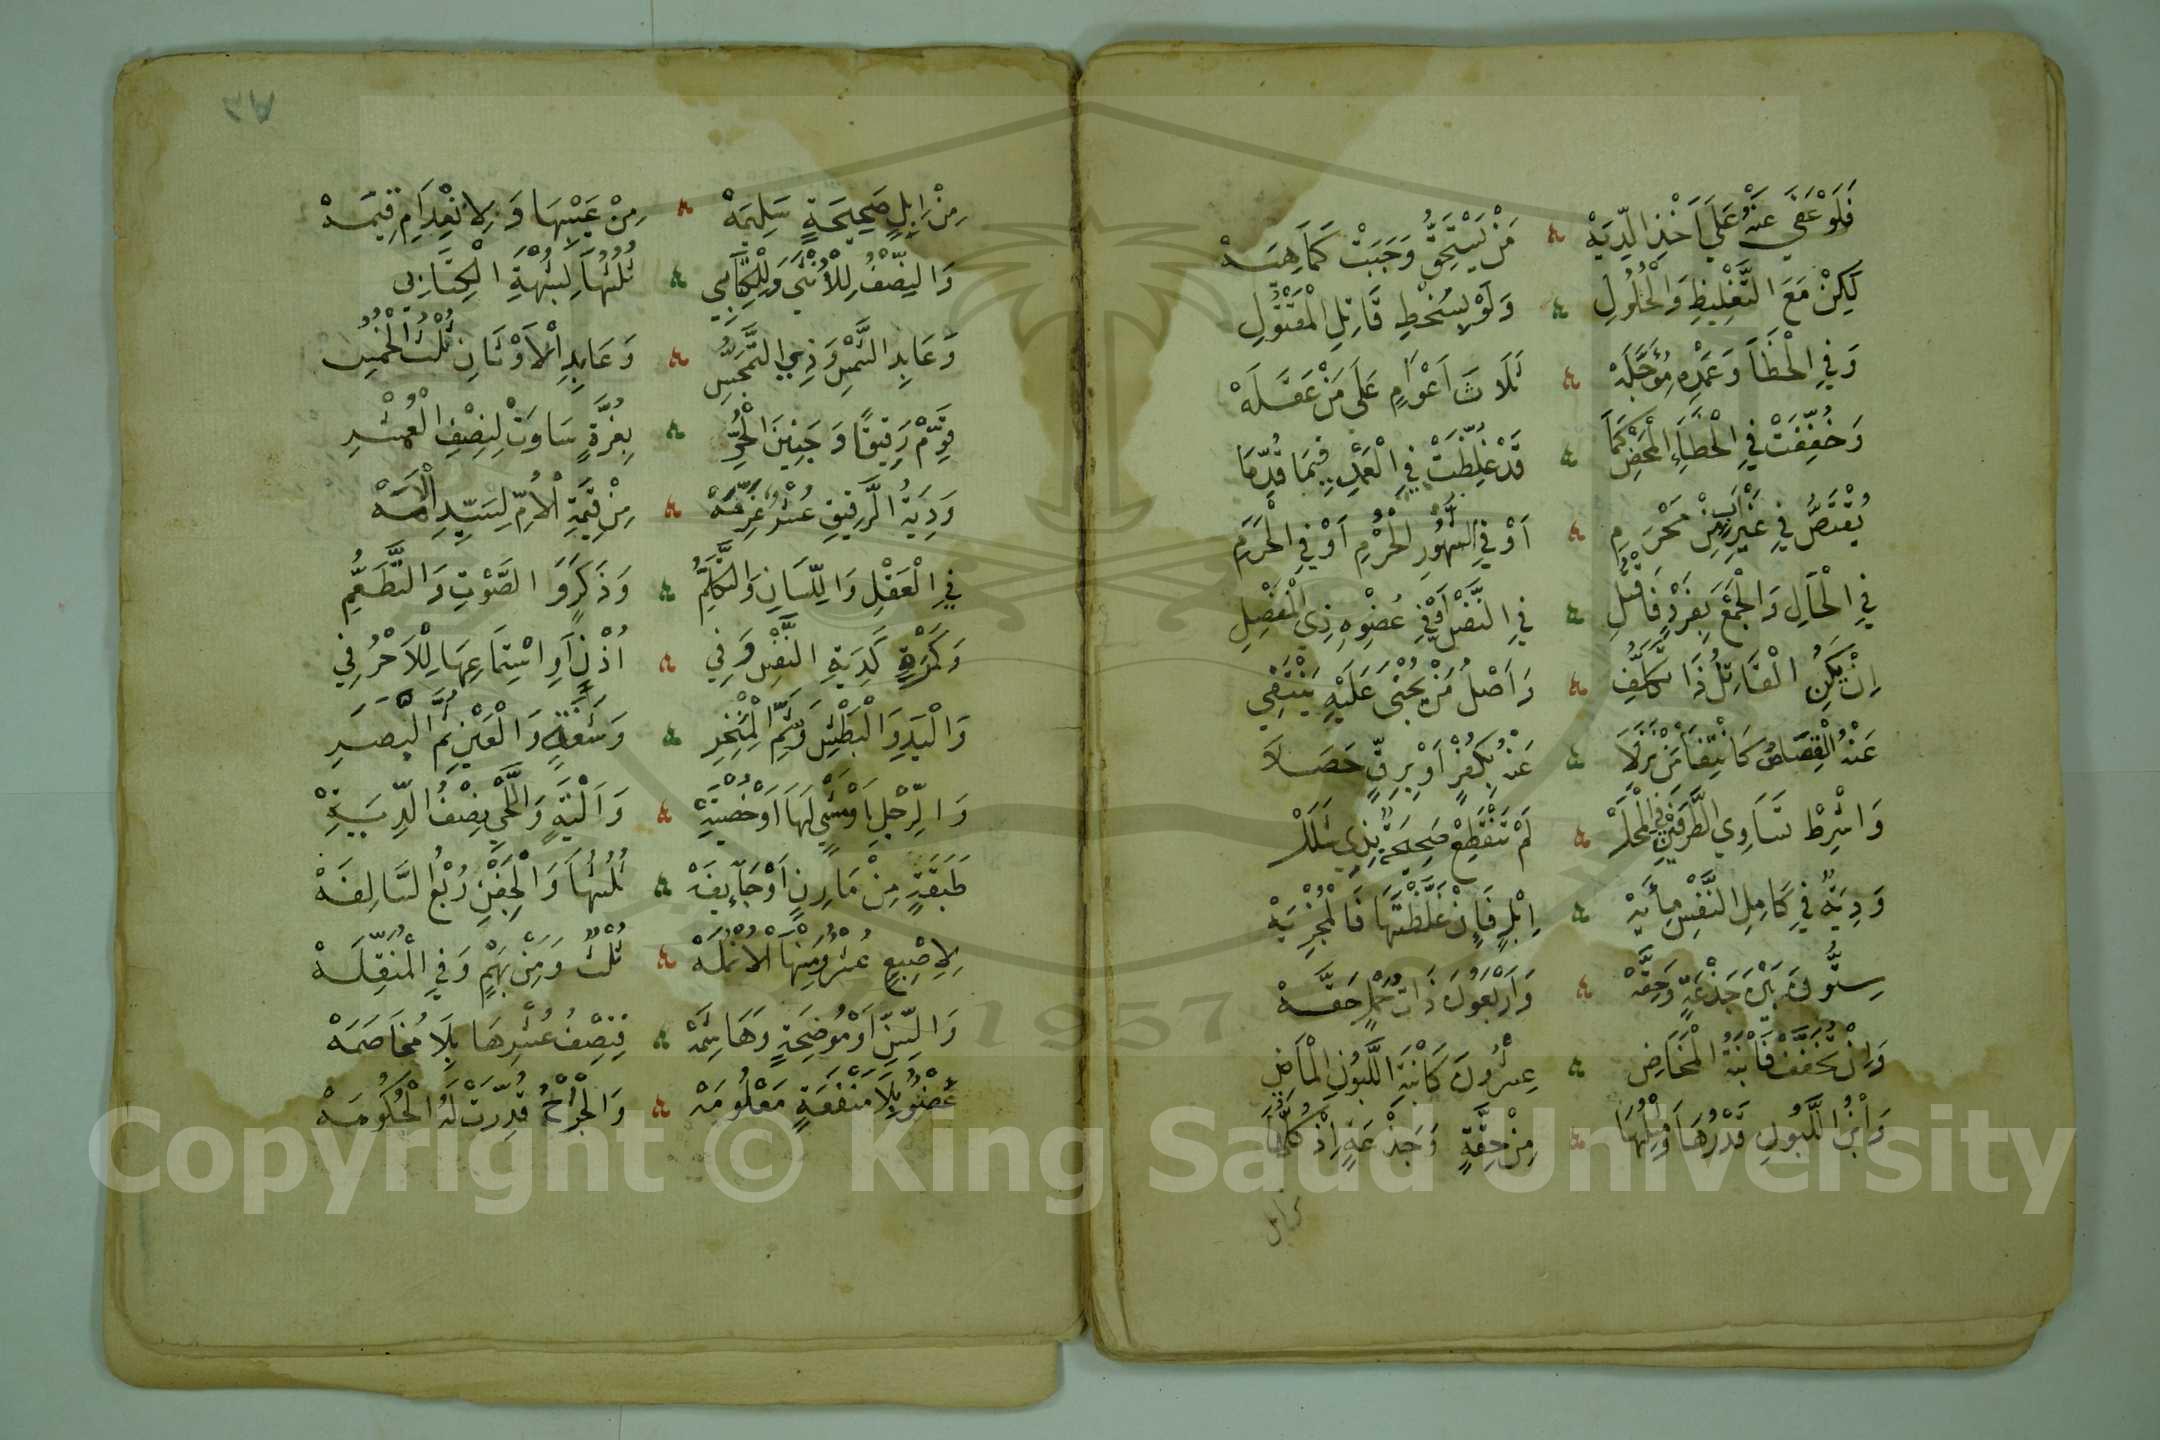 فَلَوْ عَفَى عَنْهُ عَلَى اَخْذِ الدِّيَهْ ۞ مَنْ يَسْتَحِقُّ وَجَبَتْ كَمَا هِيَهْ
لَكِنْ مَعَ التَّغْلِيظِ وَالْحُلُولِ ۞ وَلَوْ بِسُخْطِ قَاتِلِ الْمَقْتُولِ
وَفِي الْخَطَا وَعَمْدِهِ مُؤَجَّلَهْ ۞ ثَلَاثَ اَعْوَامٍ عَلَى مَنْ عَقَلَهْ
وَخُفِّفَتْ فِي الْخَطَاءِ الْمَحْضِ كَمَا ۞ قَدْ غُلِّظَتْ فِي الْعَمْدِ فِيمَا قُدِّمَا
يُقْتَصُّ فِي غَيْرِ اَبٍ مِنْ مَحْرَمِ ۞ اَوْ فِي الشُّهُورِ الْحُرْمِ اَوْ فِي الْحَرَمِ
فِي الْحَالِ وَالْجَمْعَ بِفَرْدٍ فَاقْتُلِ ۞ فِي النَّفْسِ اَوْ فِي عُضْوِهِ ذِي الْمَفْصِلِ
اِنْ يَكُنِ الْقَاتِلُ ذَا تَكَلُّفِ ۞ وَاَصْلُ مَنْ يُجْنَى عَلَيْهِ يَنْتَفِي
عَنْهُ الْقِصَاصُ كَانْتِفَا مَنْ نَزَلَا ۞ عَنْهُ بِكُفْرٍ اَوْ بِرِقٍّ حَصَلَا
وَاشْرِطْ تَسَاوِي الطَّرَفَيْنِ فِي الْمَحَلْ ۞ لَمْ تَنْقَطِعْ صَحِيحَةٌ بِذِي شَلَلْ
وَدِيَةٌ فِي كَامِلِ النَّفْسِ مِائَهْ ۞ اِبْلٍ فَاِنْ غَلَّظْتَهَا فَالْمُجْزِيَهْ
سِتُّونَ بَيْنَ جَذْعَةٍ وَحِقَّهْ ۞ وَاَرْبَعُونَ ذَاتُ حَمْلٍ حَقَّهْ
وَاِنْ تُخَفَّفْ فَابْنَةُ الْمَخَاضِ ۞ عِشْرُونَ كَابْنَةِ اللَّبُونِ الْمَاضِي
وَابْنُ اللَّبُونِ قَدْرُهَا وَمِثْلُهَا ۞ مِنْ حِقَّةٍ وَجَذْعَةٍ اِذْ كُلُّهَا
من ابل
٣٨
مِنْ اِبِلٍ صَحِيحَةٍ سَلِيمَهْ ۞ مِنْ عَيْبِهَا وَلِانْعِدَامٍ قِيمَهْ
وَالنِّصْفُ لِلْاُنْثَى وَلِلْكِتَابِي ۞ ثُلْثُهَا لِشُبْهَةِ الْكِتَابِ
وَعَابِدِ الشَّمْسِ وَذِي التَّمَجُّسِ ۞ وَعَابِدِ الْاَوْثَانِ ثُلْثُ الْخُمُسِ
قَوِّمْ رَقِيقًا وَجَنِينَ الْحُرِّ ۞ بِغُرَّةٍ سَاوَتْ لِنِصْفِ الْعُشْرِ
وَدِيَةُ الرَّقِيقِ عُشْرٌ غَرِمَهْ ۞ مِنْ قِيمَةِ الْاُمِّ لِسَيِّدِ الْاَمَهْ
فِي الْعَقْلِ وَاللِّسَانِ وَالتَّكَلُّمِ ۞ وَذَكَرٍ وَالصَّوْتِ وَالتَّطَعُّمِ
وَكَمْرَةٍ كَدِيَةِ النَّفْسِ وَفِي ۞ اُذْنٍ اَوِ اسْتِمَاعِهَا لِلْاَحْرُفِ
وَالْيَدِ وَالْبَطْشِ وَشَمِّ الْمَنْخِرِ ۞ وَشَفَةٍ وَالْعَيْنِ ثُمَّ الْبَصَرِ
وَالرِّجْلِ اَوْ مَشْيٍ لَهَا اَوْ خُصْيَهْ ۞ وَاَلْيَةٍ وَاللَّحْيِ نِصْفُ الدِّيَهْ
طَبَقَةٍ مِنْ مَارِنٍ اَوْ جَائِفَهْ ۞ ثُلُثُهَا وَالْجَفْنِ رُبْعُ السَّالِفَهْ
لِاِصْبِعٍ عُشْرٌ وَمِنْهَا الْاُنْمُلَهْ ۞ ثُلْثٌ وَمِنْ بَهْمٍ وَفِي الْمُنَقِّلَهْ
وَالسِّنِّ اَوْ مُوضِحَةٍ وَهَاشِمَهْ ۞ فَنِصْفُ عُشْرِهَا بِلَا مُخَاصَمَهْ
عُضْوٌ بِلَا مَنْفَعَةٍ مَعْلُومَهْ ۞ وَالْجُرْحُ قُدِّرَتْ لَهُ الْحُكُومَهْ
1957
Copyright © King Saud University